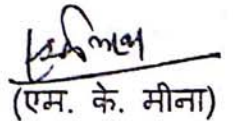 (एम. के. मीना)